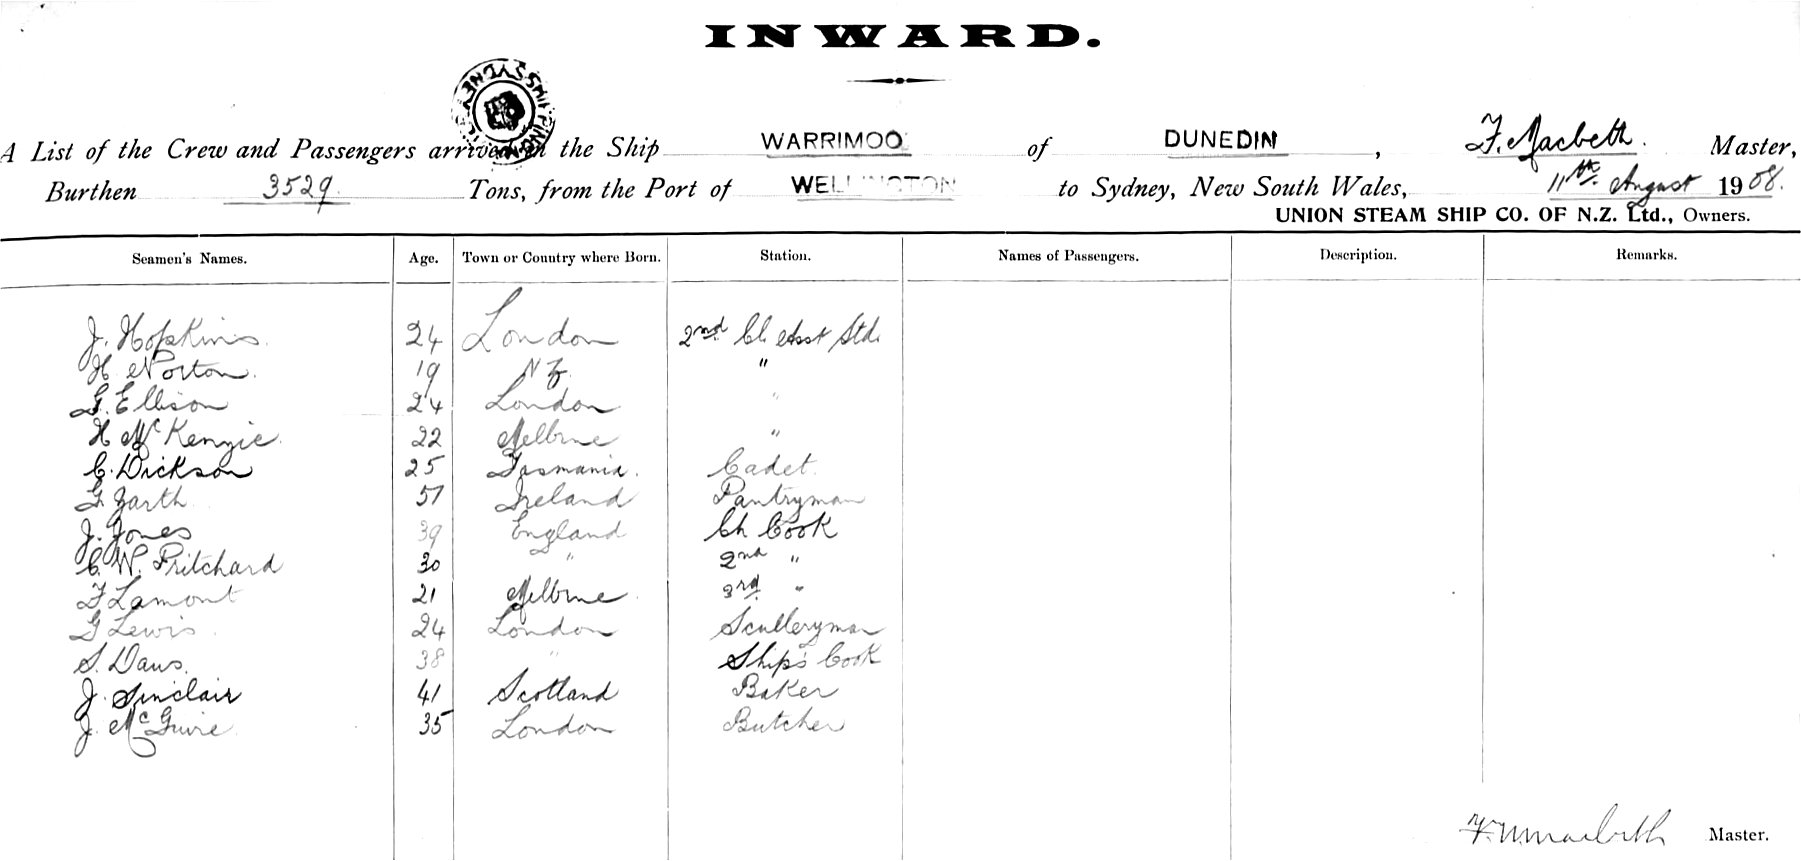 INWARD.
SHIPPING SYDNEY
A List of the Crew and Passengers arrived in the Ship WARRIMOO of DUNEDIN, F. Macbeth. Master,
Burthen 3529. Tons, from the Port of WELLINGTON to Sydney, New South Wales, 11th August 1908.
UNION STEAM SHIP CO. OF N.Z. Ltd., Owners.
Seamen's Names. Age. Town or Country where Born. Station. Names of Passengers. Description. Remarks.
J. Hopkins. 24 London 2nd Cl. Asst Std.
H. Norton. 19 N Z. "
G. Ellison 24 London "
H McKenzie. 22 Melbrne "
C. Dickson 25 Tasmania. Cadet.
G. Garth 51 Ireland Pantryman
J. Jones 39 England Ch Cook
C. W. Pritchard 30 " 2nd "
F Lamont 21 Melbrne. 3rd. "
G Lewis. 24 London Sculleryman
S. Davis. 38 " Ship's Cook
J. Sinclair 41 Scotland Baker
J. McGuire. 35 London Butcher
Macbeth Master.